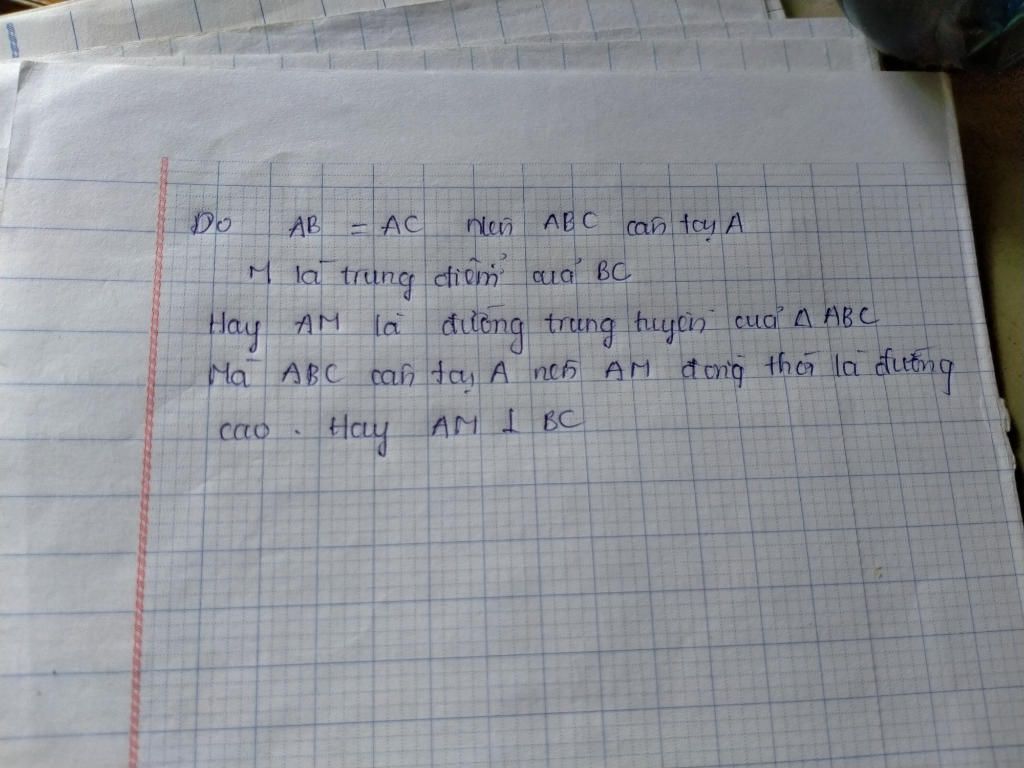 Do AB = AC nên ABC cân tại A
M là trung điểm của BC
Hay AM là đường trung tuyến của Δ ABC
Mà ABC cân tại A nên AM đồng thời là đường
cao . Hay AM ⊥ BC